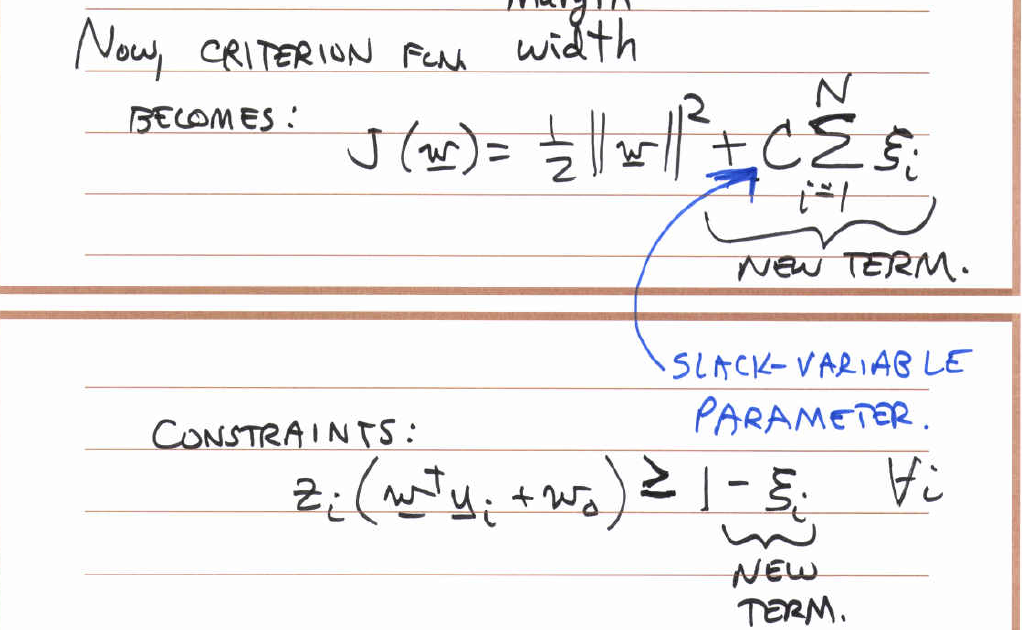 margin
Now, CRITERION FCN. width
BECOMES:
J(w) = 1/2 ||w||² + C ∑_{i=1}^{N} ξ_i
NEW TERM.
SLACK-VARIABLE
PARAMETER.
CONSTRAINTS:
z_i (w^T u_i + w_0) ≥ 1 - ξ_i ∀i
NEW
TERM.